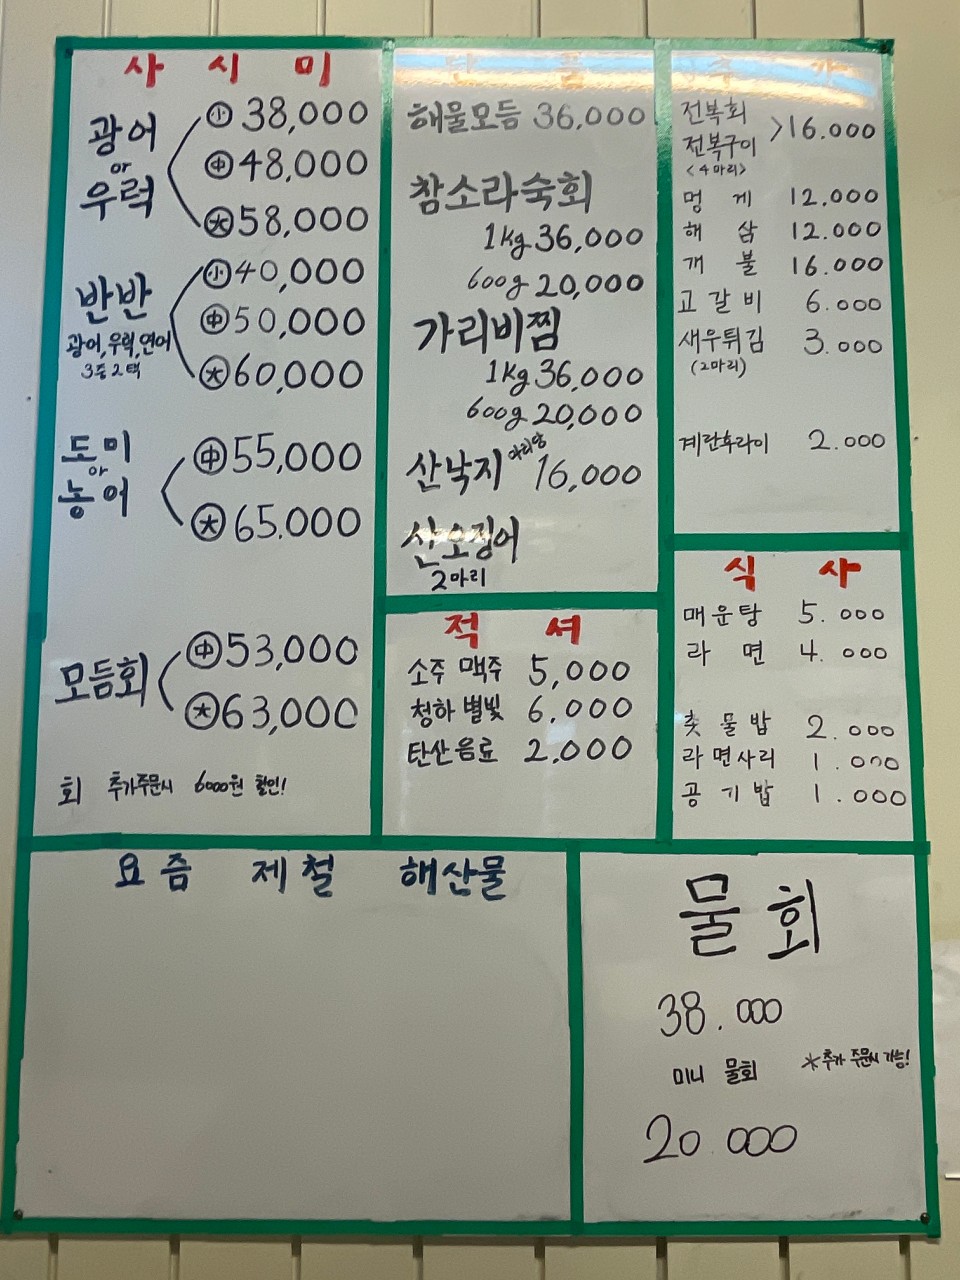 사 시 미
광어 or 우럭
小 38,000
中 48,000
大 58,000
반반
광어, 우럭, 연어
3중 2택
小 40,000
中 50,000
大 60,000
도미 or 농어
中 55,000
大 65.000
모듬회
中 53,000
大 63,000
회 추가주문시 6000원 할인!
단 품
해물모듬 36,000
참소라숙회
1kg 36,000
600g 20,000
가리비찜
1kg 36,000
600g 20,000
산낙지 마리당 16,000
산오징어
2마리
적 셔
소주 맥주 5,000
청하 별빛 6.000
탄산음료 2.000
추 가
전복회
전복구이 >16.000
<4마리>
멍 게 12.000
해 삼 12.000
개 불 16.000
고갈비 6.000
새우튀김 3.000
(2마리)
계란후라이 2.000
식 사
매운탕 5.000
라 면 4.000
햇물밥 2.000
라면사리 1.000
공기밥 1.000
요즘 제철 해산물
물회
38.000
미니 물회 *추가 주문시 가능!
20.000